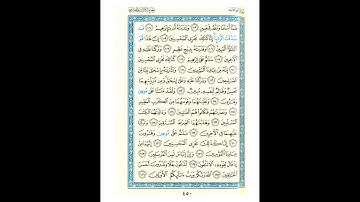 فَلَمَّآ أَسْلَمَا وَتَلَّهُۥ لِلْجَبِينِ ١٠٣ وَنَٰدَيْنَٰهُ أَن يَٰٓإِبْرَٰهِيمُ ١٠٤ قَدْ
صَدَّقْتَ ٱلرُّءْيَآ إِنَّا كَذَٰلِكَ نَجْزِى ٱلْمُحْسِنِينَ ١٠٥ إِنَّ هَٰذَا لَهُوَ
ٱلْبَلَٰٓؤُا۟ ٱلْمُبِينُ ١٠٦ وَفَدَيْنَٰهُ بِذِبْحٍ عَظِيمٍ ١٠٧ وَتَرَكْنَا عَلَيْهِ فِى
ٱلْءَاخِرِينَ ١٠٨ سَلَٰمٌ عَلَىٰٓ إِبْرَٰهِيمَ ١٠٩ كَذَٰلِكَ نَجْزِى ٱلْمُحْسِنِينَ
١١٠ إِنَّهُۥ مِنْ عِبَادِنَا ٱلْمُؤْمِنِينَ ١١١ وَبَشَّرْنَٰهُ بِإِسْحَٰقَ نَبِيًّا مِّنَ
ٱلصَّٰلِحِينَ ١١٢ وَبَٰرَكْنَا عَلَيْهِ وَعَلَىٰٓ إِسْحَٰقَ وَمِن ذُرِّيَّتِهِمَا
مُحْسِنٌ وَظَالِمٌ لِّنَفْسِهِۦ مُبِينٌ ١١٣ وَلَقَدْ مَنَنَّا عَلَىٰ مُوسَىٰ
وَهَٰرُونَ ١١٤ وَنَجَّيْنَٰهُمَا وَقَوْمَهُمَا مِنَ ٱلْكَرْبِ ٱلْعَظِيمِ
١١٥ وَنَصَرْنَٰهُمْ فَكَانُوا۟ هُمُ ٱلْغَٰلِبِينَ ١١٦ وَءَاتَيْنَٰهُمَا ٱلْكِتَٰبَ
ٱلْمُسْتَبِينَ ١١٧ وَهَدَيْنَٰهُمَا ٱلصِّرَٰطَ ٱلْمُسْتَقِيمَ ١١٨ وَتَرَكْنَا
عَلَيْهِمَا فِى ٱلْءَاخِرِينَ ١١٩ سَلَٰمٌ عَلَىٰ مُوسَىٰ وَهَٰرُونَ
١٢٠ إِنَّا كَذَٰلِكَ نَجْزِى ٱلْمُحْسِنِينَ ١٢١ إِنَّهُمَا مِنْ عِبَادِنَا
ٱلْمُؤْمِنِينَ ١٢٢ وَإِنَّ إِلْيَاسَ لَمِنَ ٱلْمُرْسَلِينَ ١٢٣ إِذْ
قَالَ لِقَوْمِهِۦٓ أَلَا تَتَّقُونَ ١٢٤ أَتَدْعُونَ بَعْلًا وَتَذَرُونَ أَحْسَنَ
ٱلْخَٰلِقِينَ ١٢٥ ٱللَّهَ رَبَّكُمْ وَرَبَّ ءَابَآئِكُمُ ٱلْأَوَّلِينَ ١٢٦
٤٥٠